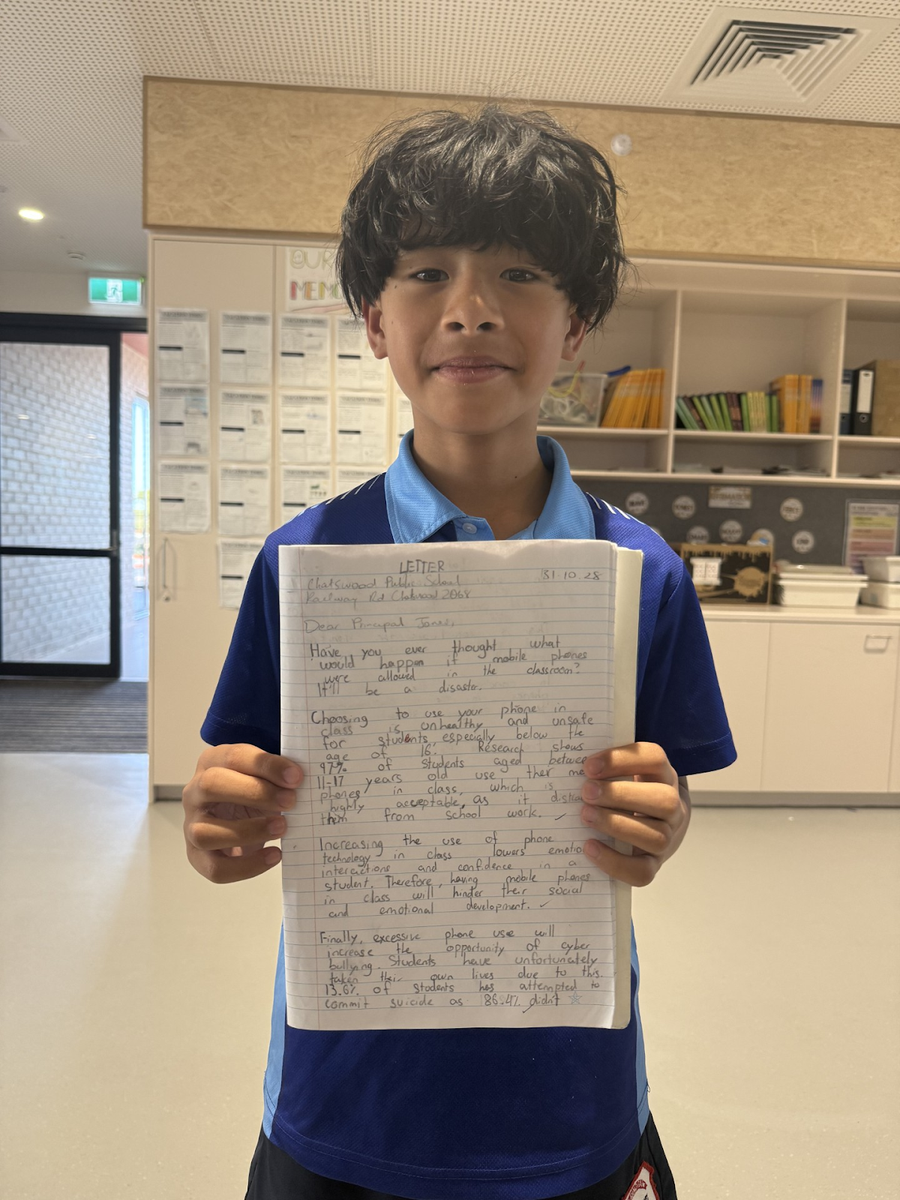 LETTER
Chatswood Public School 31.10.28
Railway Rd Chatswood 2068
Dear Principal
Have you ever thought what
would happen if mobile phones
were allowed in the classroom?
It'll be a disaster.
Choosing to use your phone in
class is unhealthy and unsafe
for students especially below the
age of 16. Research shows
97% of students aged between
11-17 years old use
phones in class, which is
highly acceptable, as it
them from school work.
Increasing the use of phone
technology in class lowers
interactions and confidence in a
student. Therefore, having mobile phones
in class will hinder their social
and emotional development.
Finally, excessive phone use will
increase the opportunity of cyber
bullying. Students have unfortunately
taken their own lives due to this.
13.6% of students has attempted to
commit suicide as 86.4% didn't
OUR
MEMO